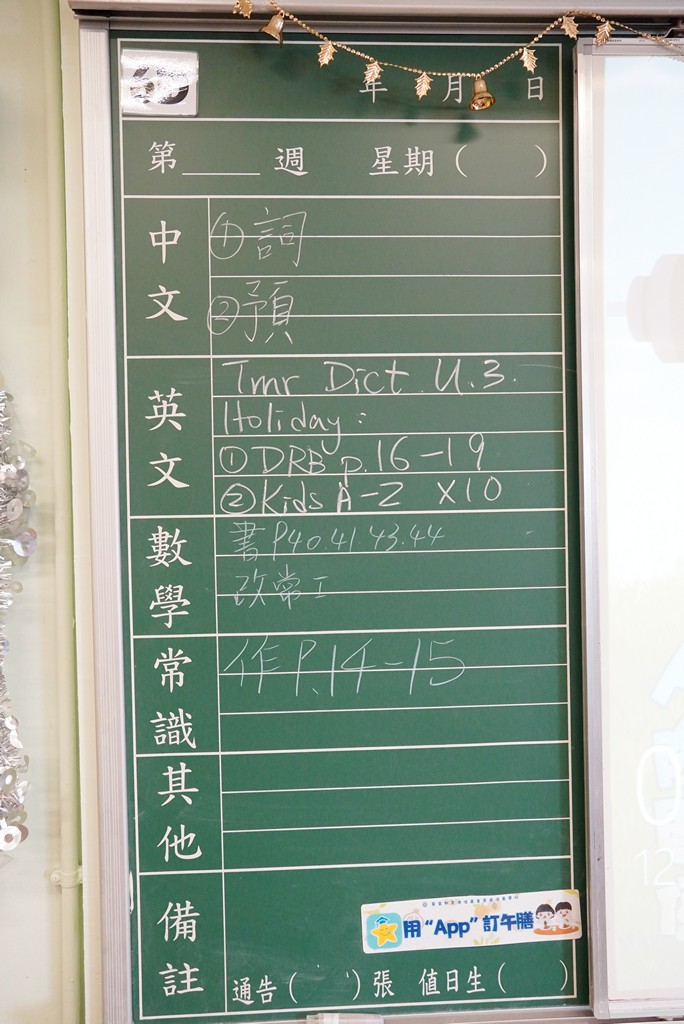 年 月 日
第____週 星期( )
中文
①詞
②預
英文
Tmr Dict U.3.
Holiday:
①DRB p.16-19
②Kids A-Z X10
數學
書P40.41.43.44
改常工
常識
作P.14-15
其他
備註
用“App”訂午膳
通告( )張 值日生( )